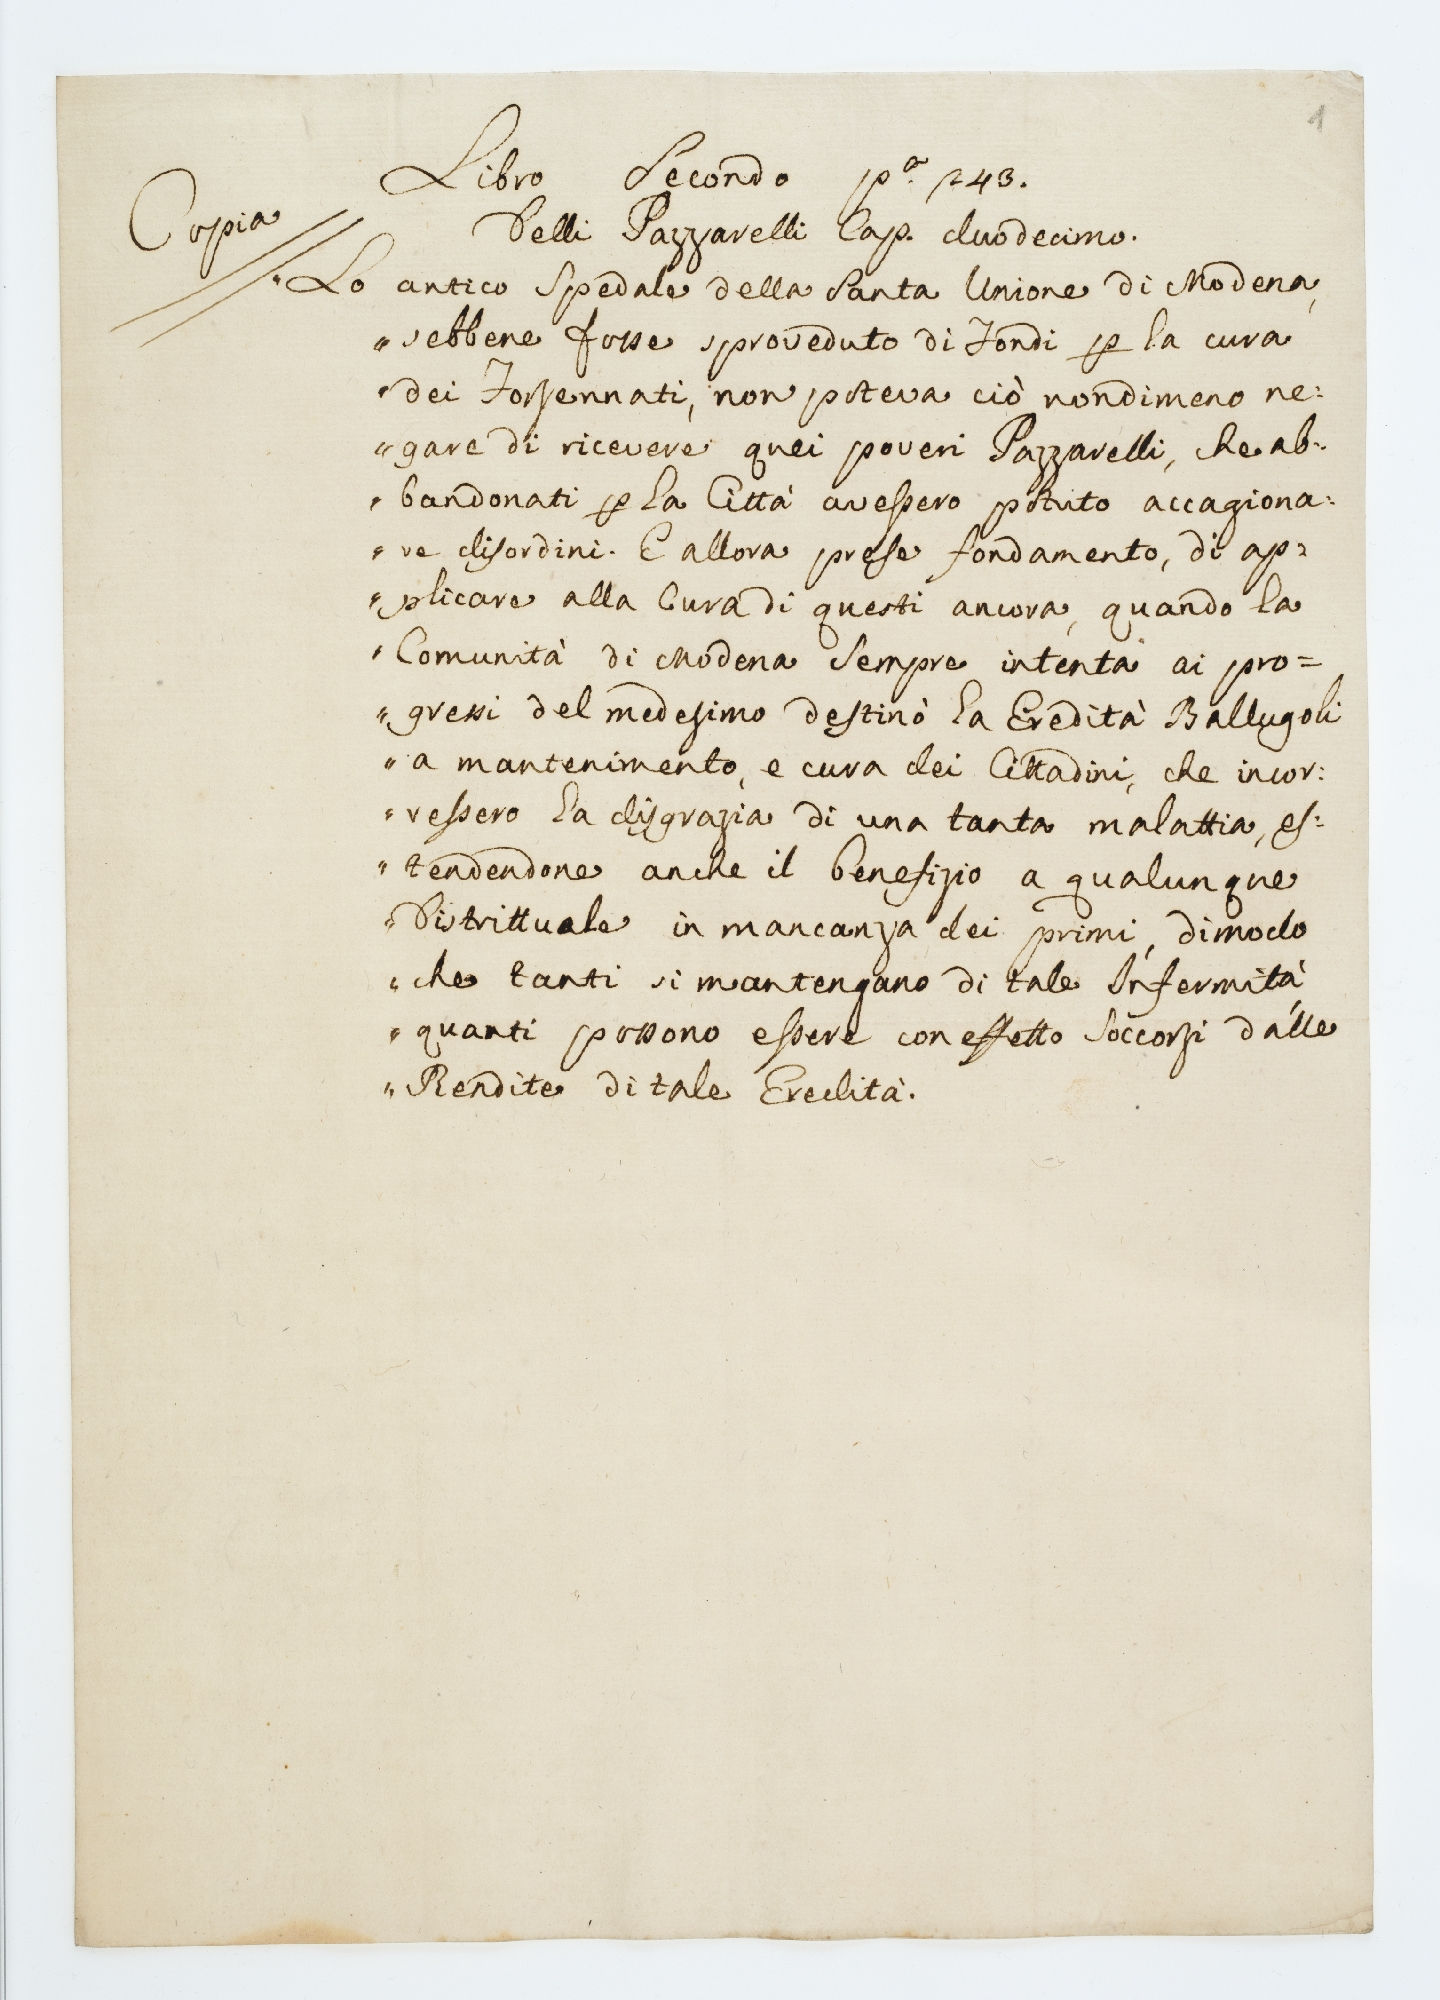 1
Libro Secondo pa. 243.
Copia
Delli Pazzarelli Cap. duodecimo.
"Lo antico Spedale della Santa Unione di Modena,
" sebbene fosse sproveduto di Fondi p la cura
" dei Forsennati, non poteva ciò nondimeno ne:
" gare di ricevere quei poveri Pazzarelli, che ab:
" bandonati p la Città avessero potuto accagiona:
" re disordini. E allora prese fondamento, di ap:
" plicare alla Cura di questi ancora, quando la
" Comunità di Modena sempre intenta ai pro=
" gressi del medesimo destinò la Eredità Ballugoli
" a mantenimento, e cura dei Cittadini, che incor:
" ressero la disgrazia di una tanta malattia, es:
" tendendone anche il benefizio a qualunque
" Distrittuale in mancanza dei primi, dimodo
" che tanti si mantengano di tale Infermità,
" quanti possono essere con effetto soccorsi dalle
" Rendite di tale Eredità.